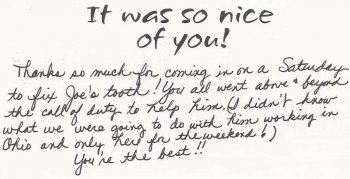 It was so nice
of you!
Thanks so much for coming in on a Saturday
to fix Joe's tooth! You all went above & beyond
the call of duty to help him (I didn't know
what we were going to do with him working in
Ohio and only here for the weekend!)
You're the best!!